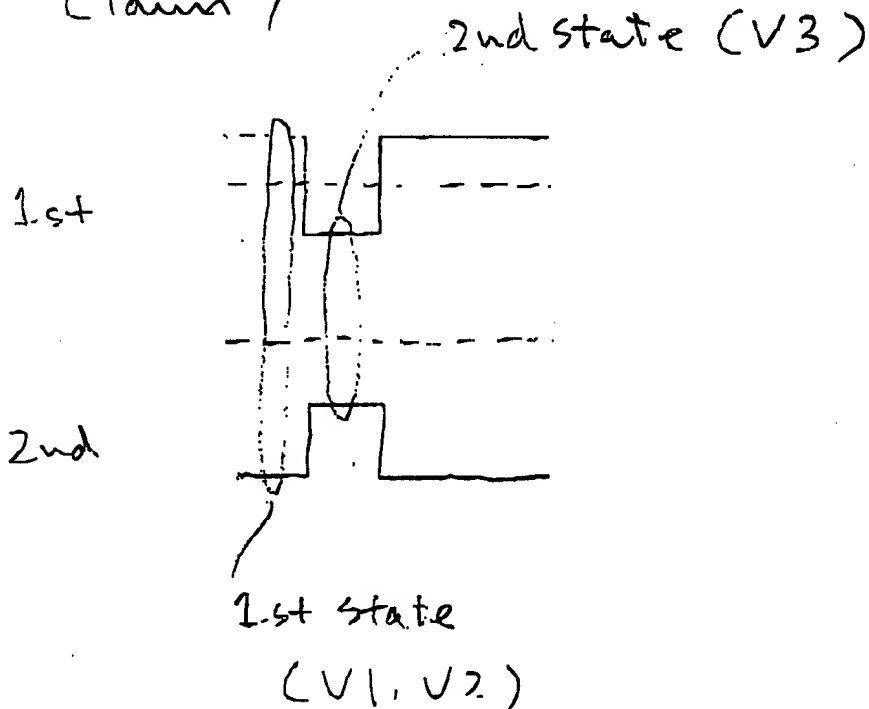 2nd state (V3)
1.st
2nd
1.st state
(V1, V2)